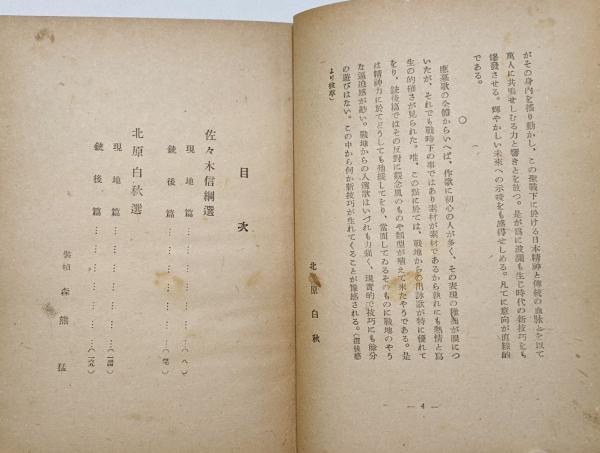 がその身内を搖り動かし、この聖戰下に於ける日本精神と傳統の血脉とを以て
萬人に共鳴せしむる力と響きとを放つ。是が爲に波瀾も生じ時代の新技巧をも
爆發させる。輝やかしい未來への示唆をも感得せしめる。凡てに意向が直線的
である。
○
應募歌の全體からいへば、作歌に初心の人が多く、その表現の稚拙が眼につ
いたが、それでも戰時下の事ではあり素材が素材であるから孰れにも熱情と寫
生の的確さが見られた。唯、この點に於ては、戰地からの出詠歌が特に優れて
をり、銃後篇ではその反對に觀念風のものや類型が殖えて來たやうである。是
は精神力に於てどうしても弛緩してをり、當面してゐるそのものに戰地のやう
な逼迫感が尠い。戰地からの入選歌はいづれも力強く、現實的で技巧にも餘分
の遊びはない。この中から何か新技巧が生れてくることが豫感される。(選後感
より拔萃)
北原白秋
— 4 —
目次
佐々木信綱選
現地篇…………………(一)
銃後篇…………………
北原白秋選
現地篇…………………
銃後篇…………………
裝幀 森熊猛